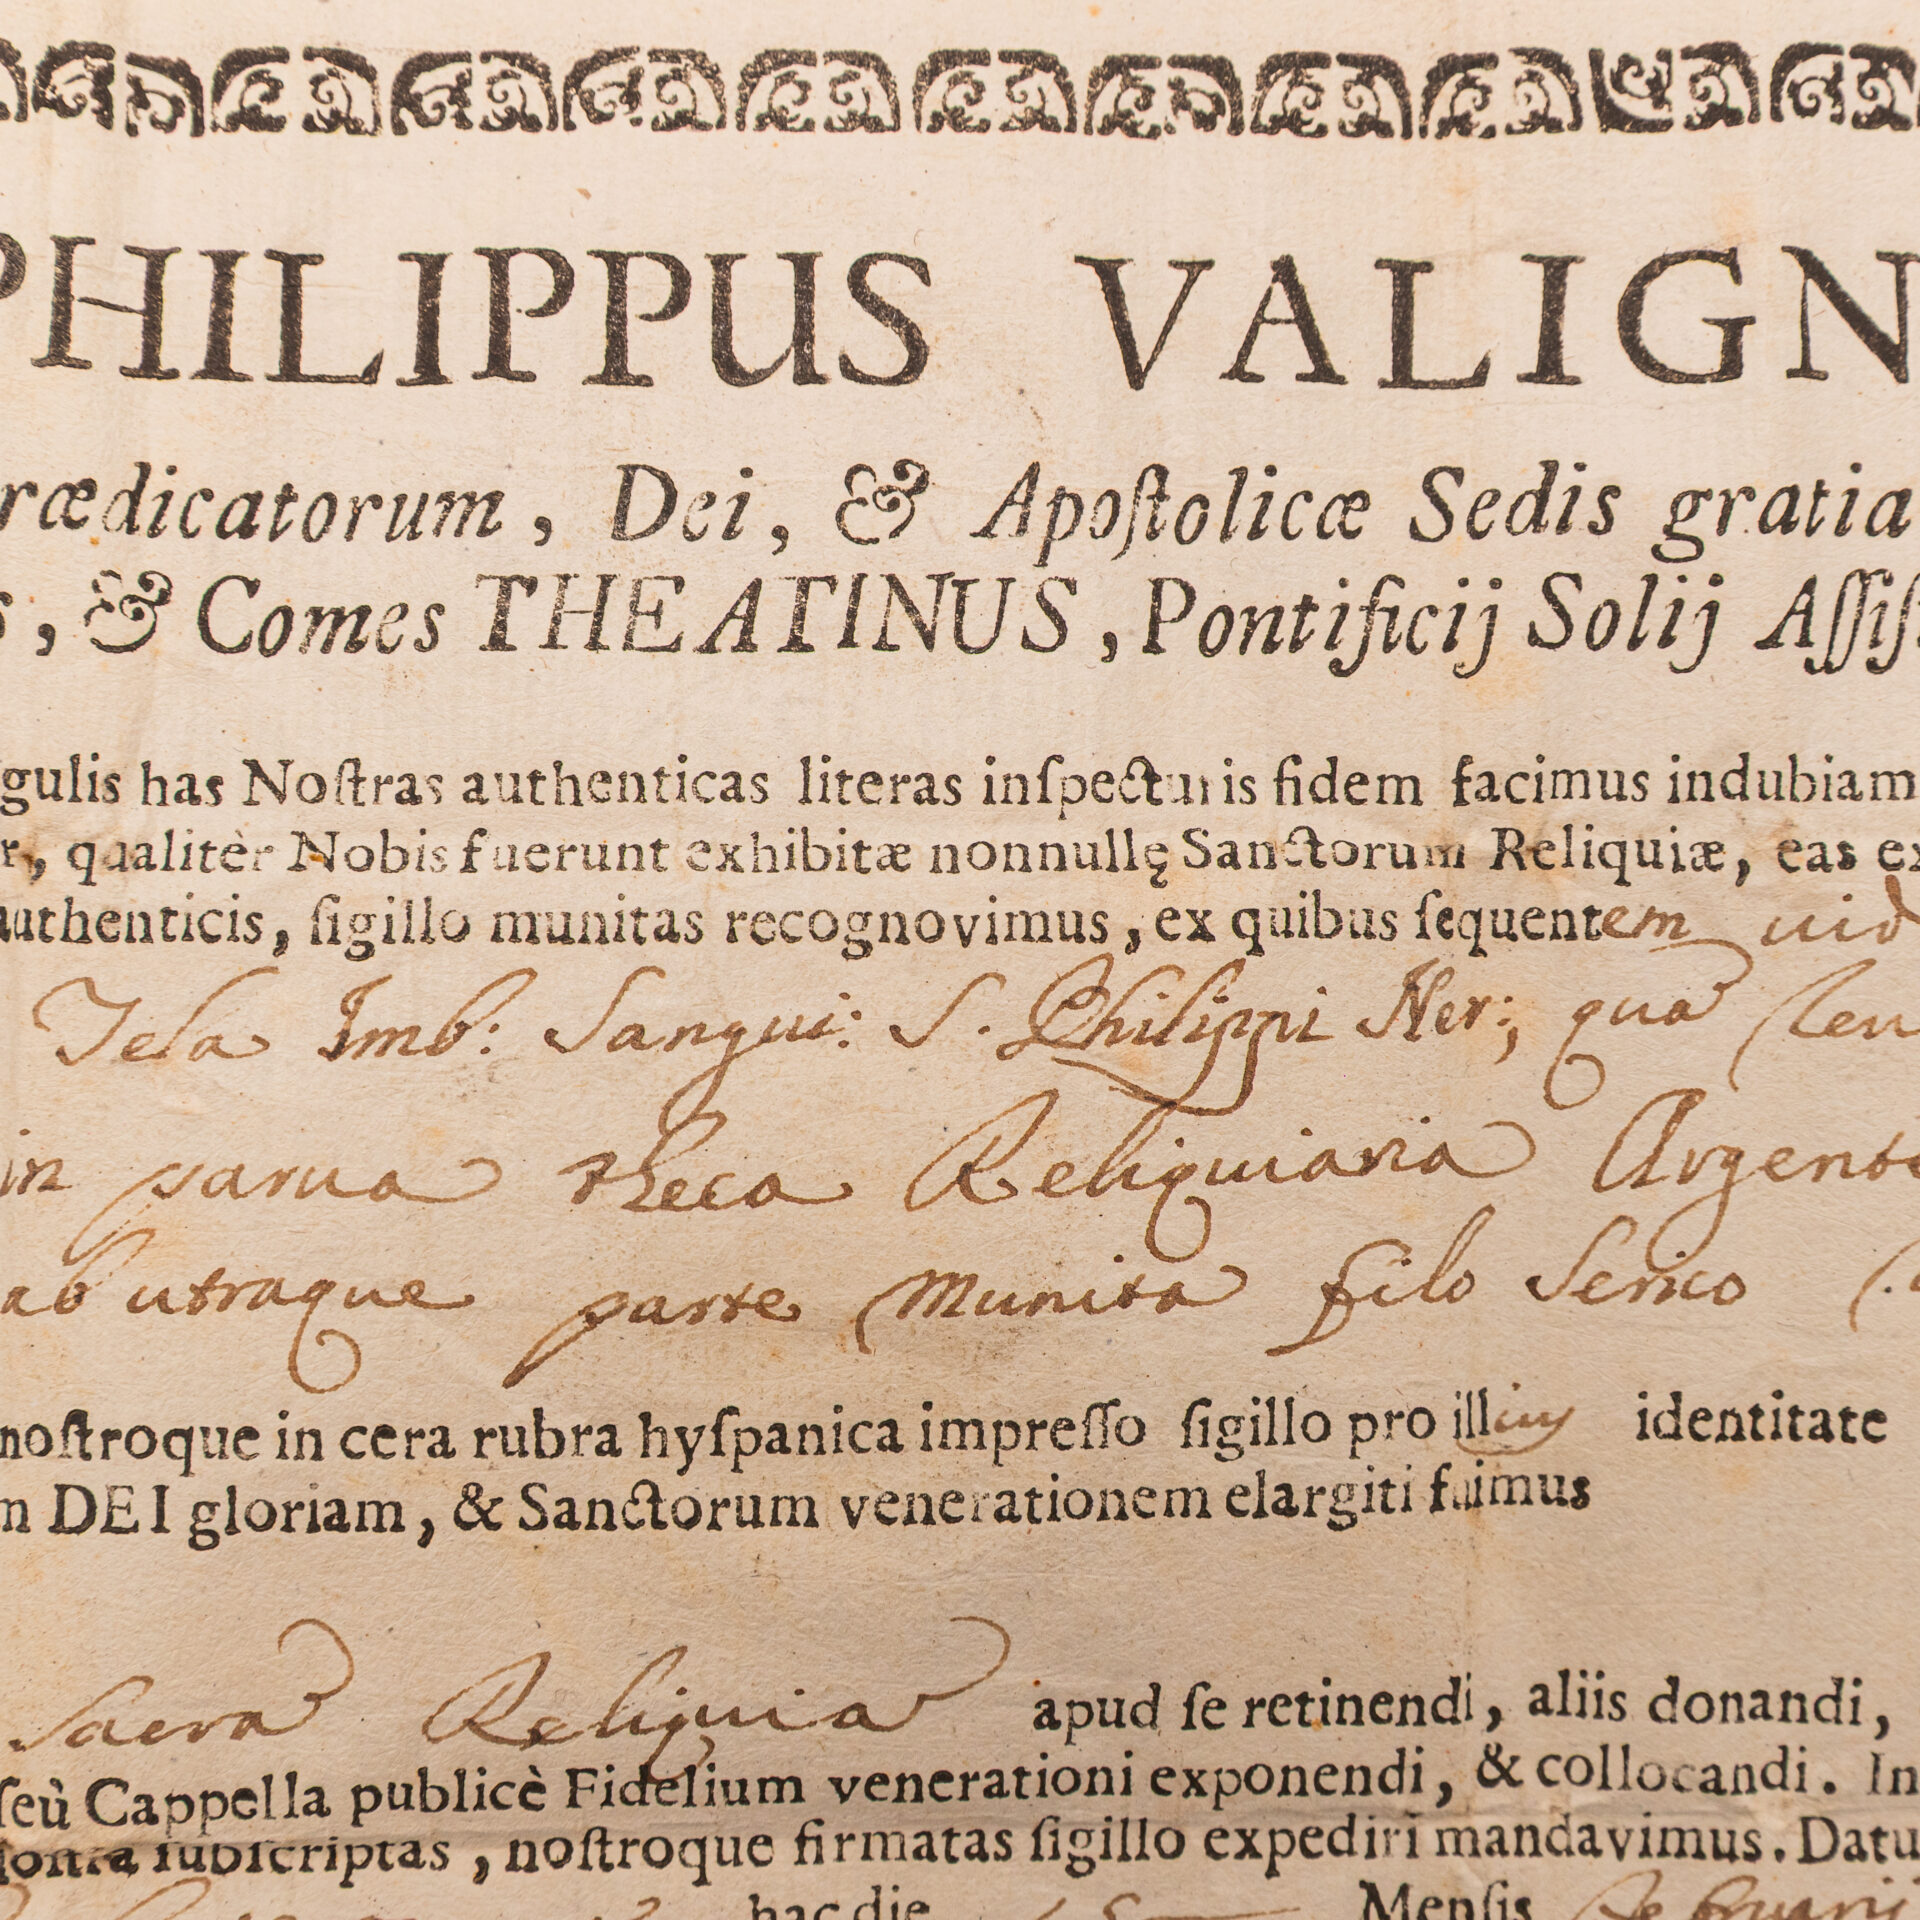 PHILIPPUS VALIGN
rædicatorum, Dei, & Apoſtolicæ Sedis gratia
s, & Comes THEATINUS, Pontificij Solij Aſſiſ
gulis has Noſtras authenticas literas inſpecturis fidem facimus indubiam
r, qualitèr Nobis fuerunt exhibitæ nonnullę Sanctorum Reliquiæ, eas ex
authenticis, ſigillo munitas recognovimus, ex quibus ſequentem uid
Tela Imb: Sangui: S. Philippi Ner:, qua
in parua theca Reliquiaria Argent
ab utraque parte munita filo Serico
noſtroque in cera rubra hyſpanica impreſſo ſigillo pro illius identitate
m DEI gloriam, & Sanctorum venerationem elargiti fuimus
Sacra Reliquia apud ſe retinendi, aliis donandi,
ſeù Cappella publicè Fidelium venerationi exponendi, & collocandi. In
ſubſcriptas, noſtroque firmatas ſigillo expediri mandavimus. Datu
hac die Mensis Februarii